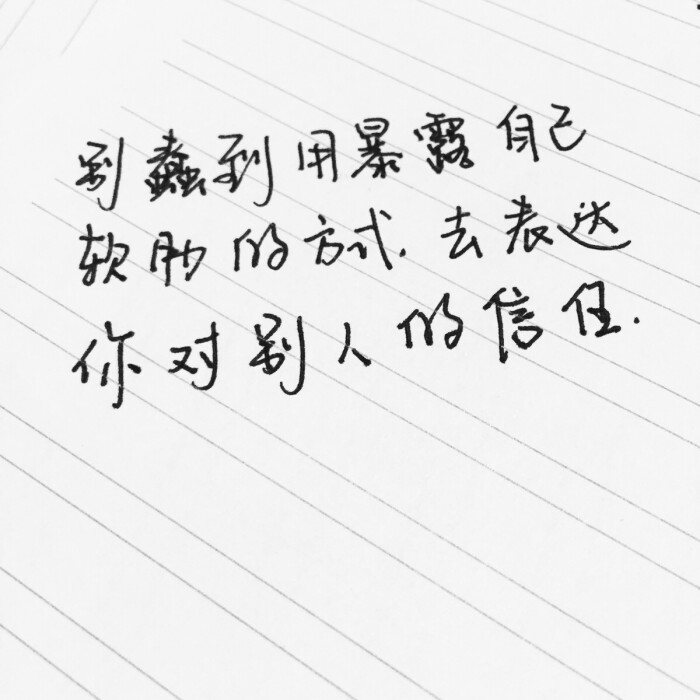 别蠢到用暴露自己
软肋的方式.去表达
你对别人的信任.